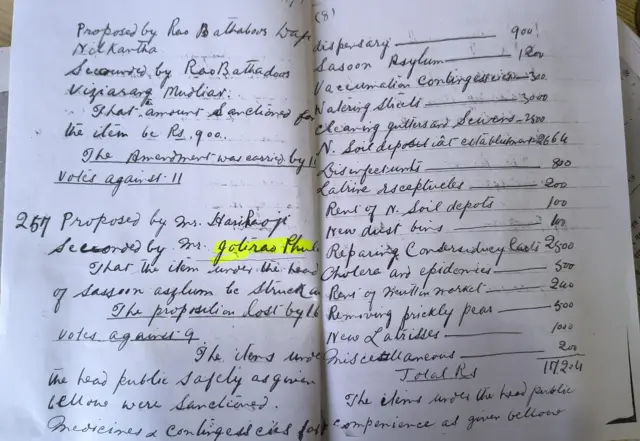 Proposed by Rao Bathadoos
Nilkantha
Seconded by Rao Bathadoos
Viziarang Mudliar.
That amount Sanctioned for
the item be Rs. 900.
The Amendment was carried by 11
votes against 11
257 Proposed by Mr. Hari Raoji
Seconded by Mr. Jotirao Phul
That the item under the head
of sassoon asylum be struck
The proposition lost by 16
votes against 9.
The items unde
the head public safely as given
bellow were sanctioned.
Medicines & contingescies for
(8)
dispensary 900
Sasoon Asylum 1200
Vaccumation Contingescies 300
Watering Stieets 3000
Cleaning gutters and Sewers 2500
N. Soil deposit establishment 2664
Disinfectunts 800
Latrine receptivcles 200
Rent of N. Soil depots 100
New dust bins 100
Repairing Conservidncy Carts 2500
Cholera and epidemics 500
Rent of Mutton market 240
Removing prickly pear 500
New Latrisses 1000
Miscellaneous 200
Total Rs
The items under the head public
compenience as given bellow